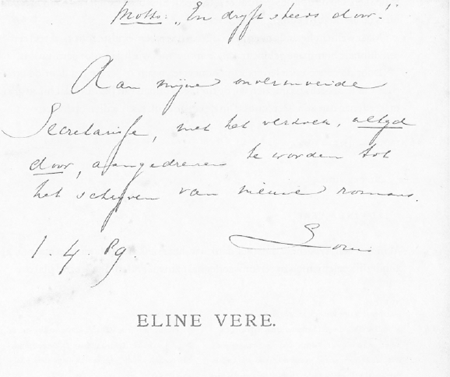 Motto: „En drijft steeds door!"
Aan mijne onvermoeide
Secretarisse, met het verzoek, altijd
door, aangedreven te worden tot
het schrijven van nieuwe romans.
1.4.89. Louis
ELINE VERE.